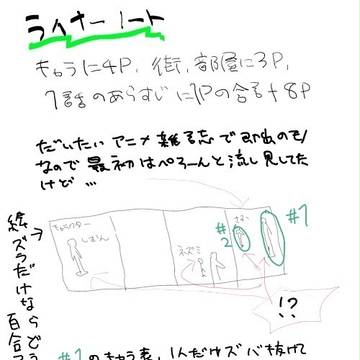 ライナーノート
きゃらに4P、街、部屋に3P、
1話のあらすじに1Pの合計8P
だいたいアニメ雑誌で既出のモノ
なので最初はぺろーんと流し見してた
けど…
キャラクター
しおん
ネズミ
さふ
#2
#1
!?
絵ヅラだけならどう
百合
#1のきゃら表、1人だけズバ抜けて